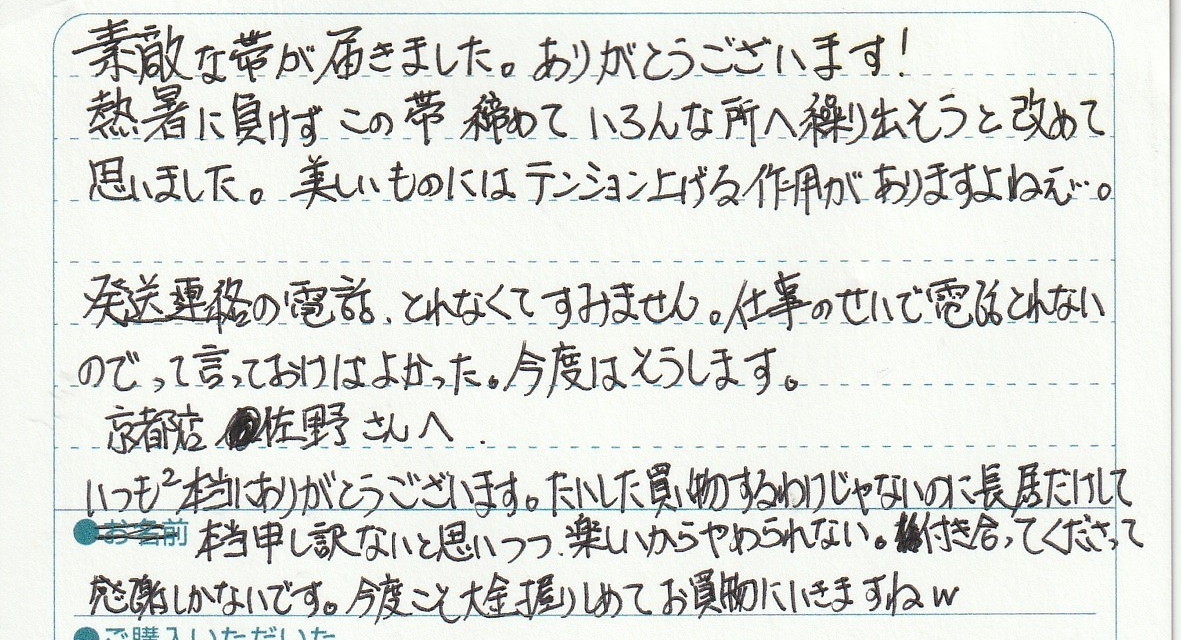 素敵な帯が届きました。ありがとうございます!
熱暑に負けず この帯 締めて いろんな所へ繰り出そうと改めて
思いました。美しいものにはテンション上げる作用がありますよねぇ…。
発送連絡の電話、とれなくてすみません。仕事のせいで電話とれない
のでって言っておけばよかった。今度はそうします。
京都店 佐野さんへ.
いつも²本当にありがとうございます。たいした買い物するわけじゃないのに長居だけして
●お名前 本当申し訳ないと思いつつ、楽しいからやめられない。付き合ってくださって
感謝しかないです。今度こそ大金握りしめてお買物にいきますねw
●ご購入いただいた